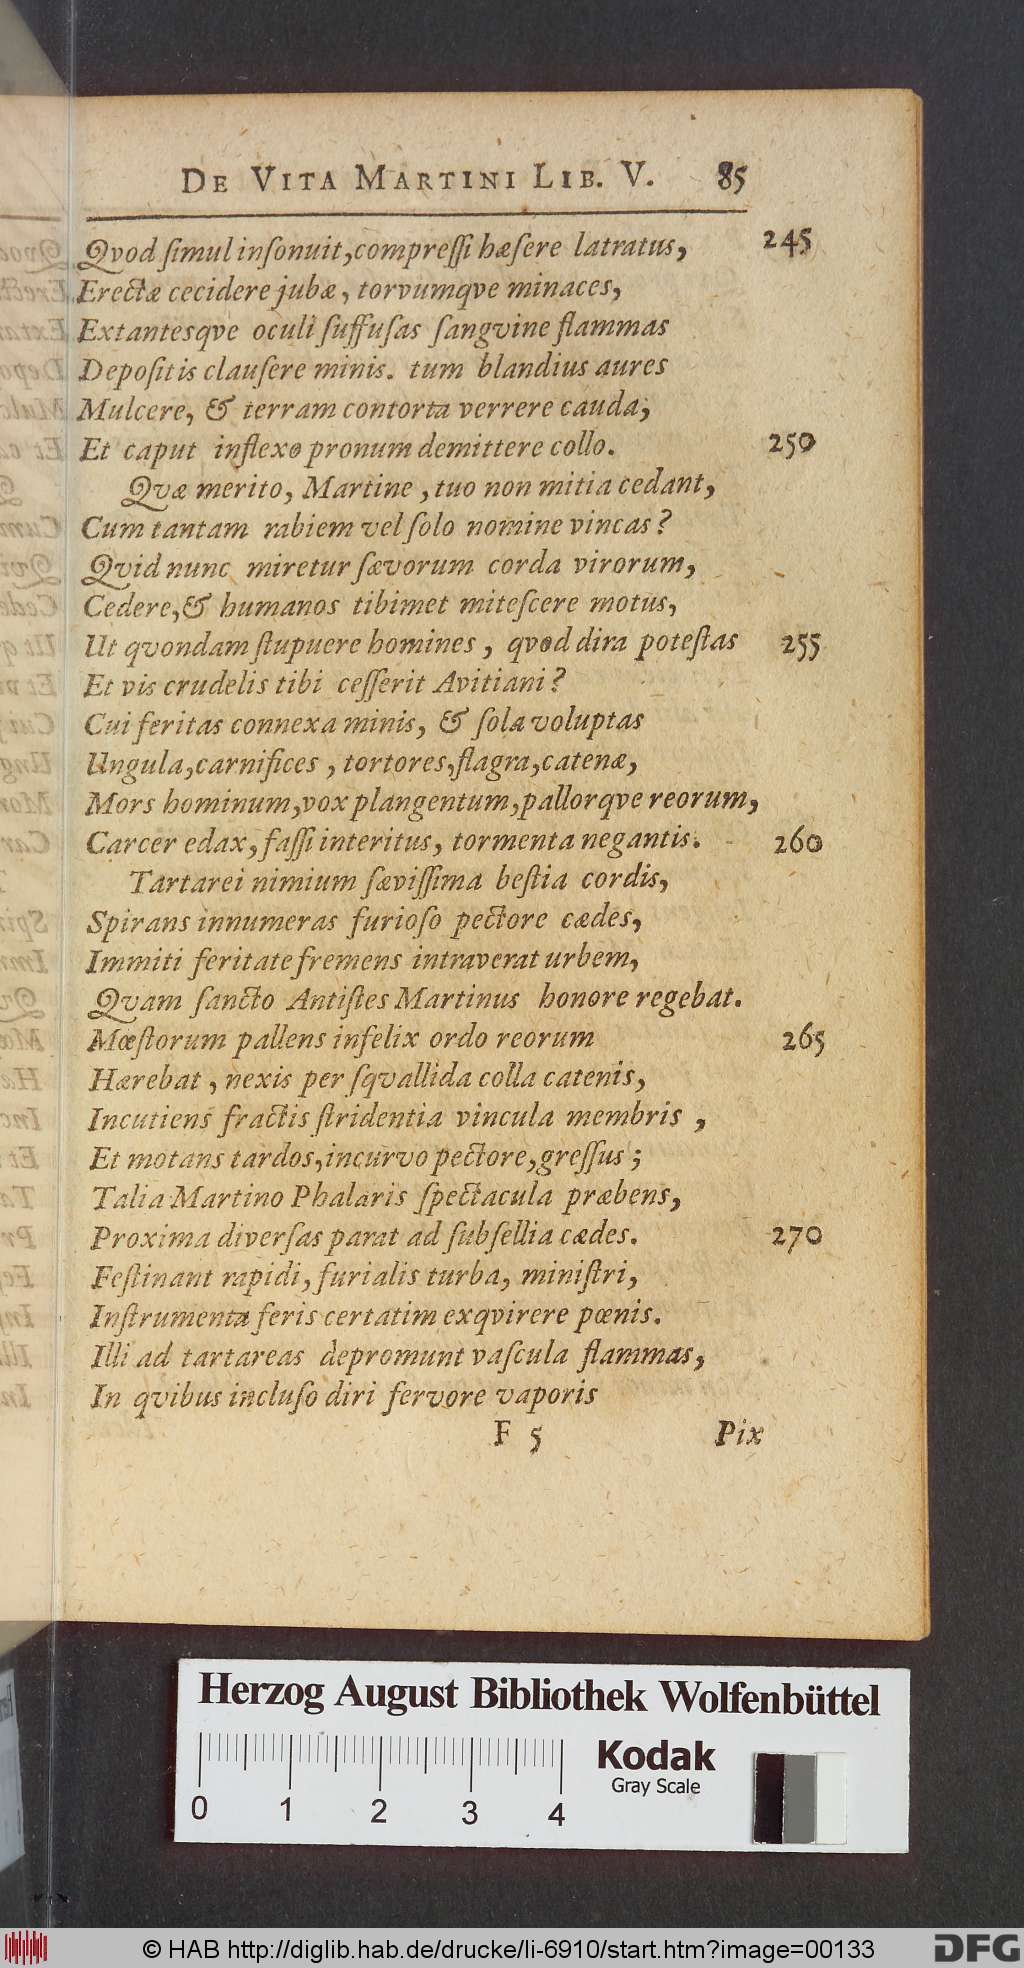 De Vita Martini Lib. V. 85
Qvod ſimul inſonuit, compreſſi hæſere latratus, 245
Erectæ cecidere jubæ, torvumqve minaces,
Extantesqve oculi ſuffuſas ſangvine flammas
Depoſitis clauſere minis. tum blandius aures
Mulcere, & terram contorta verrere cauda,
Et caput inflexo pronum demittere collo. 250
Qvæ merito, Martine, tuo non mitia cedant,
Cum tantam rabiem vel ſolo nomine vincas?
Qvid nunc miretur ſævorum corda virorum,
Cedere, & humanos tibimet miteſcere motus,
Ut qvondam ſtupuere homines, qvod dira poteſtas 255
Et vis crudelis tibi ceſſerit Avitiani?
Cui feritas connexa minis, & ſola voluptas
Ungula, carnifices, tortores, flagra, catenæ,
Mors hominum, vox plangentum, pallorqve reorum,
Carcer edax, faſſi interitus, tormenta negantis. 260
Tartarei nimium ſæviſſima beſtia cordis,
Spirans innumeras furioſo pectore cædes,
Immiti feritate fremens intraverat urbem,
Qvam ſancto Antiſtes Martinus honore regebat.
Mœſtorum pallens infelix ordo reorum 265
Hærebat, nexis per ſqvallida colla catenis,
Incutiens fractis ſtridentia vincula membris,
Et motans tardos, incurvo pectore, greſſus;
Talia Martino Phalaris ſpectacula præbens,
Proxima diverſas parat ad ſubſellia cædes. 270
Feſtinant rapidi, furialis turba, miniſtri,
Inſtrumenta feris certatim exqvirere pœnis.
Illi ad tartareas depromunt vaſcula flammas,
In qvibus incluſo diri fervore vaporis
F 5 Pix
Herzog August Bibliothek Wolfenbüttel
Kodak
Gray Scale
0 1 2 3 4
© HAB http://diglib.hab.de/drucke/li-6910/start.htm?image=00133
DFG